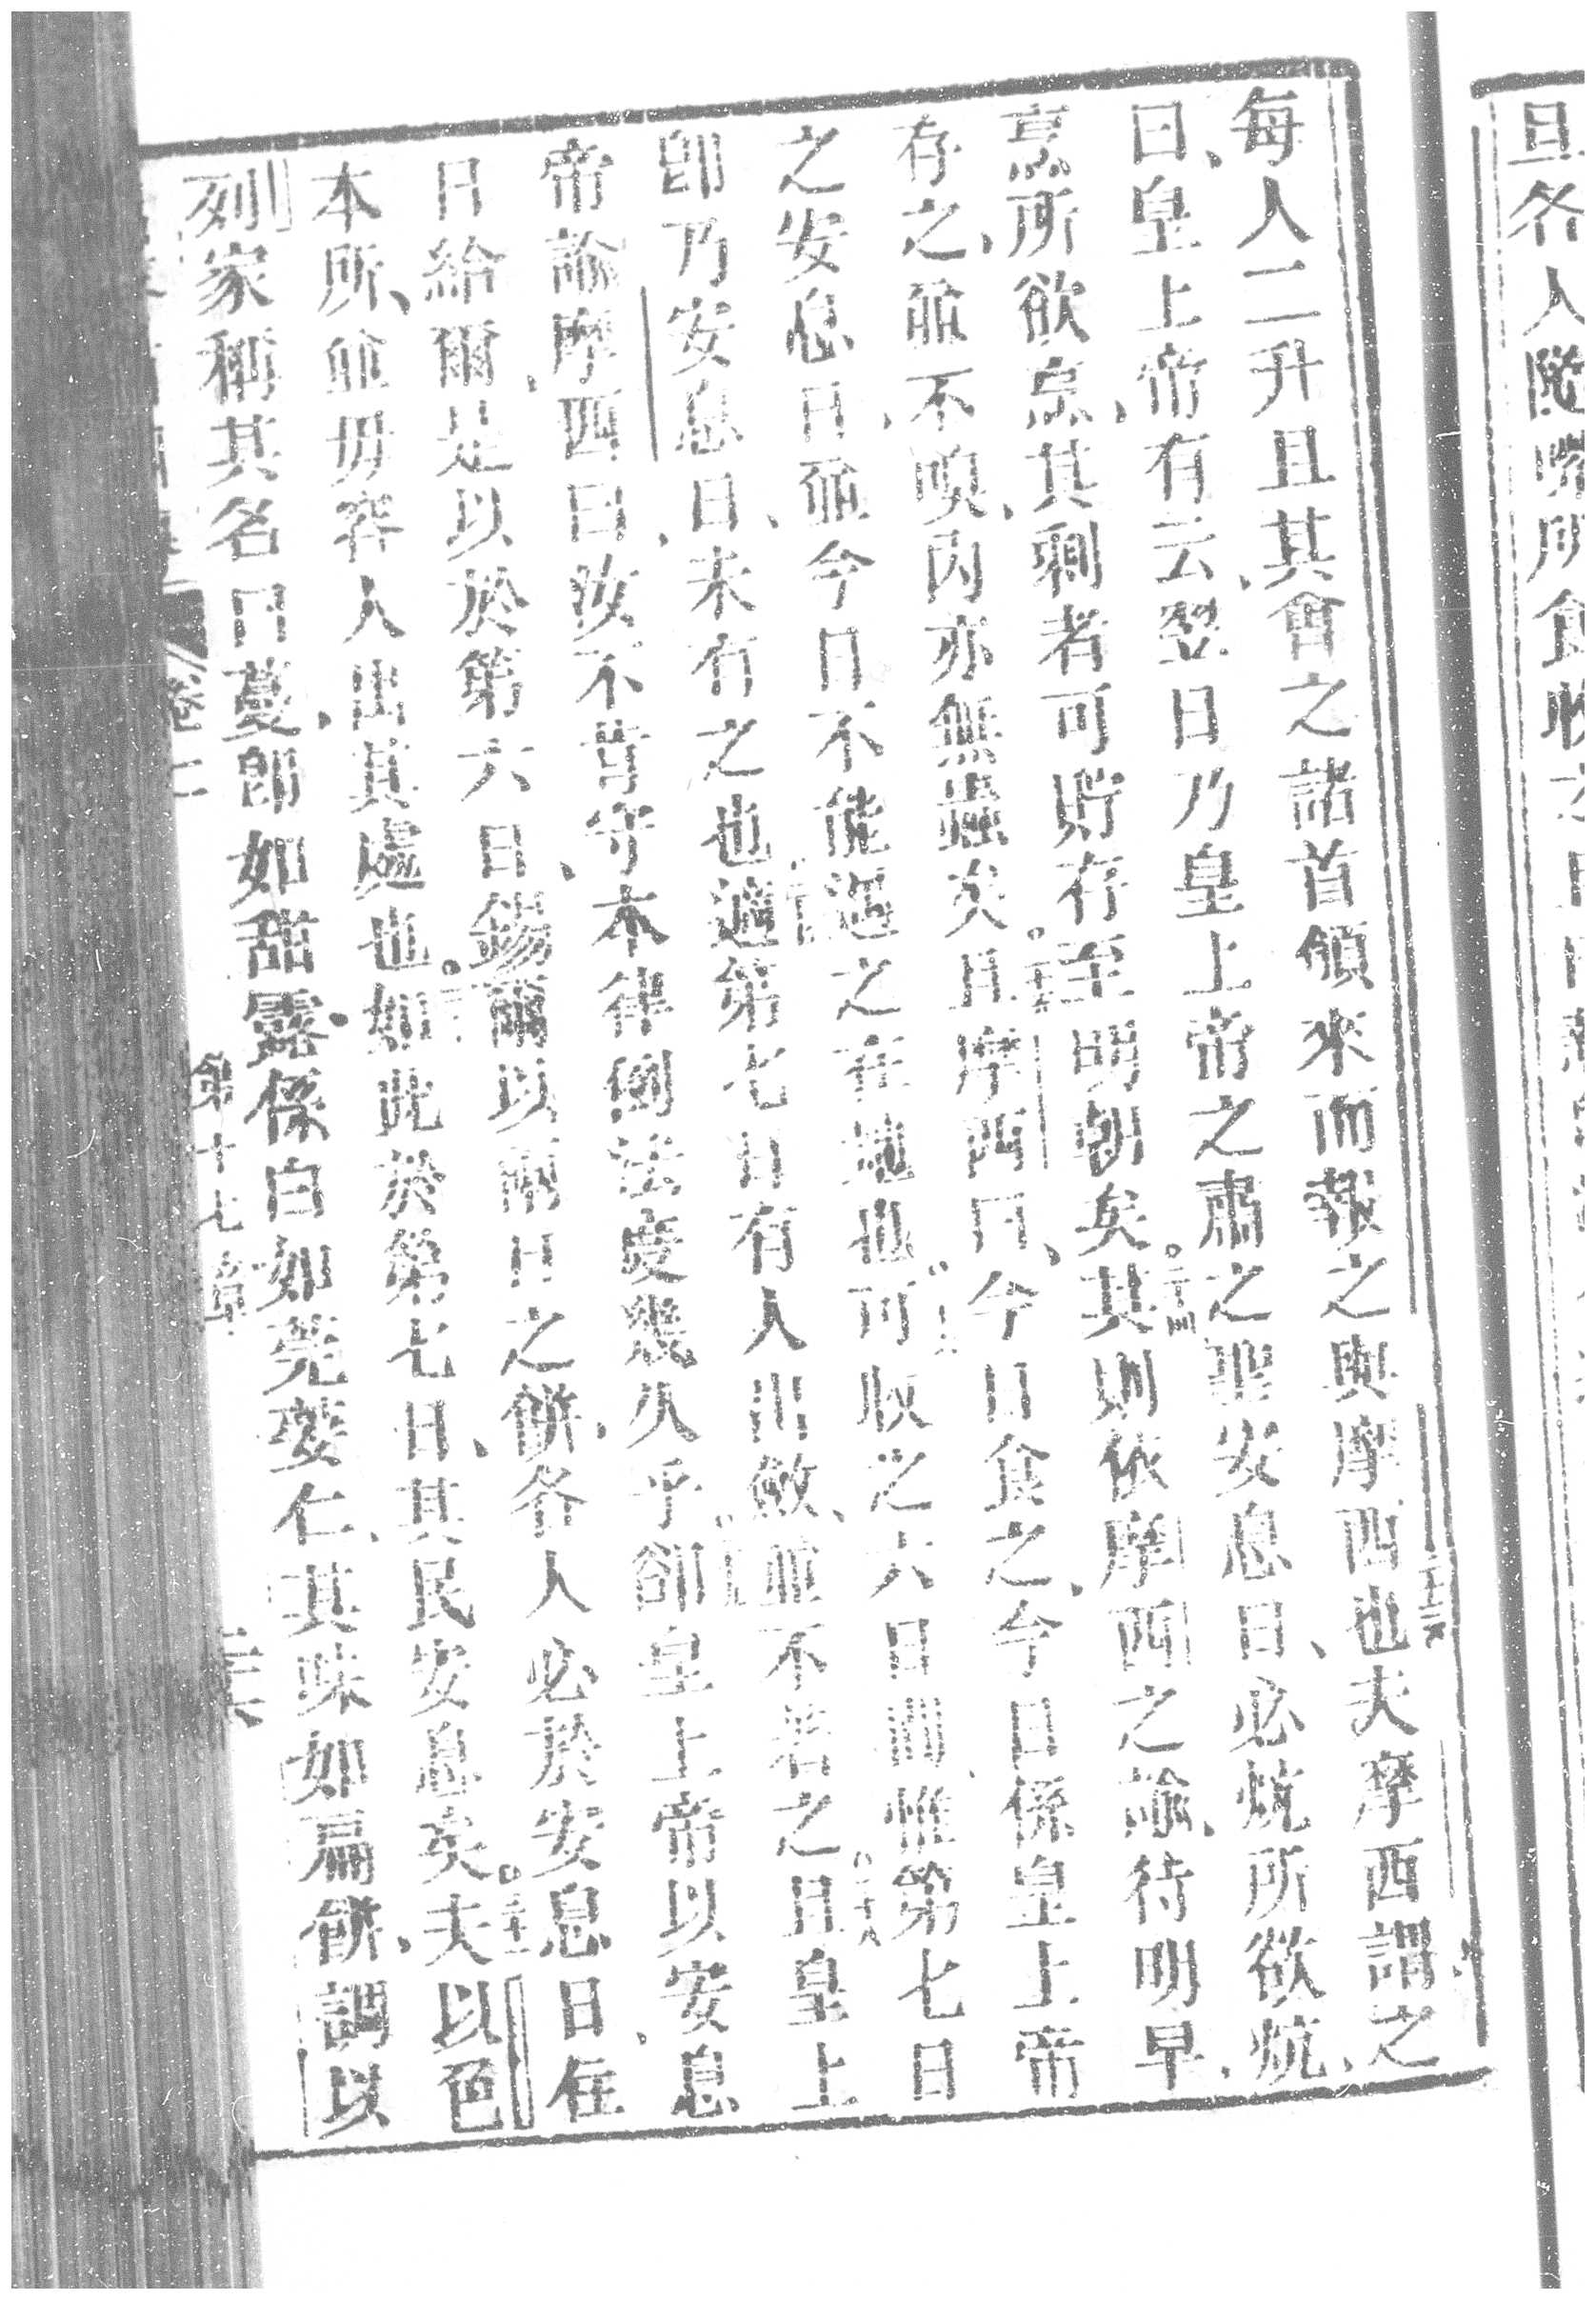 旦各人隨嘴所食收之
每人二升且其會之諸首領來而報之與摩西也夫摩西謂之
曰、皇上帝有云、翌日乃皇上帝之肅之聖安息日、必炕所欲炕、
烹所欲烹、其剩者可貯存至明朝矣。其則依摩西之諭、待明早、
存之、並不嗅、內亦無虫矣。摩西曰、今日食之、今日係皇上帝
之安息日、並今日不能遇之在地也。可收之六日間、惟第七日
卽乃安息日、未有之也。適第七日有人出斂、並不着之。且皇上
帝諭摩西曰、汝不肯守本律例法度幾久乎。卻皇上帝以安息
日給爾、是以於第六日、錫爾以兩日之餅、各人必於安息日、在
本所、並毋容人出其處也。如此於第七日、其民安息矣。夫以色
列家稱其名曰蔓、卽如甜露、係白如芫荽仁、其味如扁餅、調以
卷二 第十七章